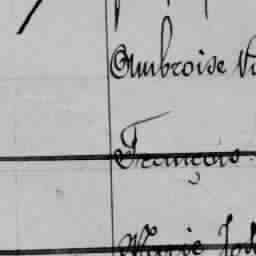 Ambroise
François
Marie